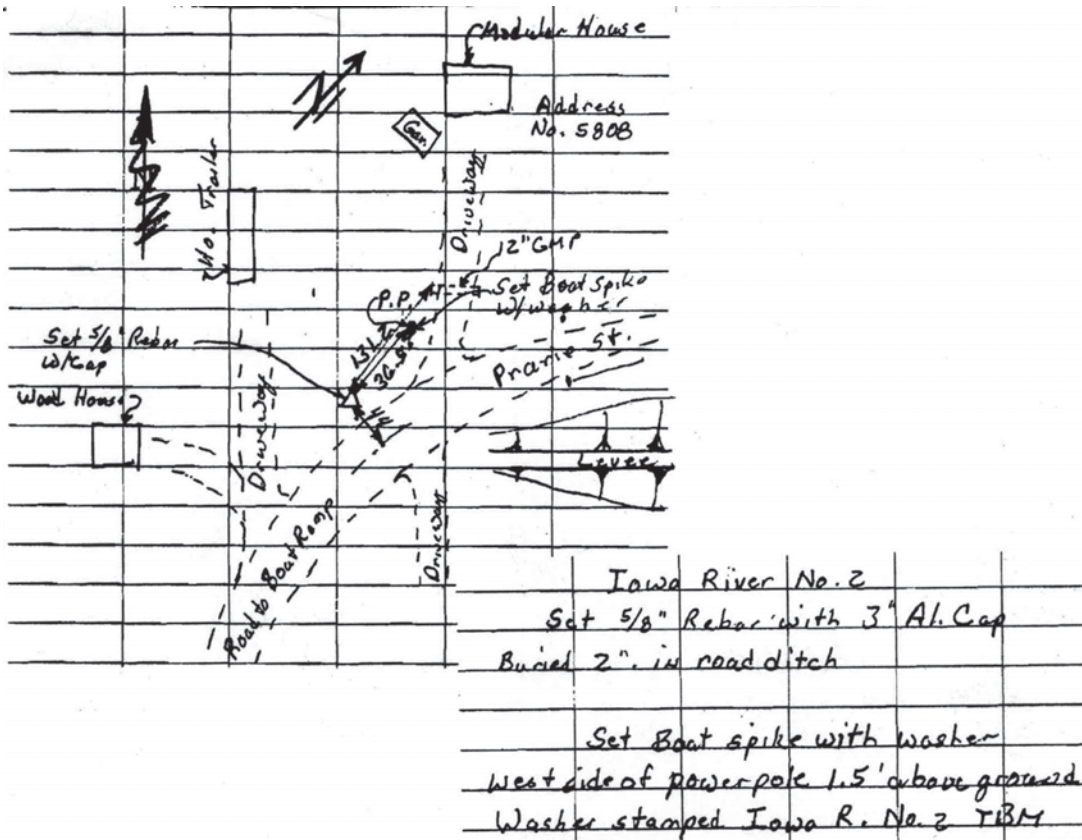 Modular House
Address
No. 5808
N
Gar.
Ho. Trailer
Driveway
12" CMP
P.P.
Set Boat Spike
w/washer
Set 5/8" Rebar
w/Cap
Wood House
Prarie St.
Driveway
Levee
Driveway
Road to Boat Ramp
Iowa River No. 2
Set 5/8" Rebar with 3" Al. Cap
Buried 2". in road ditch
Set Boat spike with washer
West side of powerpole 1.5' above ground
Washer stamped Iowa R. No. 2 TBM